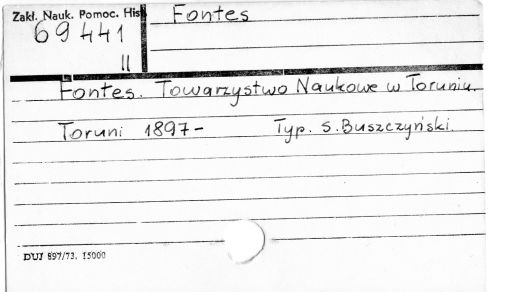 Zakł. Nauk. Pomoc. Hist.
Fontes
69441
II
Fontes. Towarzystwo Naukowe w Toruniu.
Toruni 1897- Typ. S. Buszczyński.
DUJ 897/73. 15000